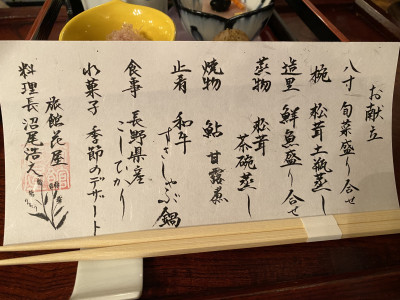 お献立
八寸 旬菜盛り合せ
椀 松茸土瓶蒸し
造里 鮮魚盛り合せ
蒸物 松茸
茶碗蒸し
焼物 鮎 甘露煮
止肴 和牛
すきしゃぶ鍋
食事 長野県産
こしひかり
水菓子 季節のデザート
旅館花屋
料理長沼尾浩之